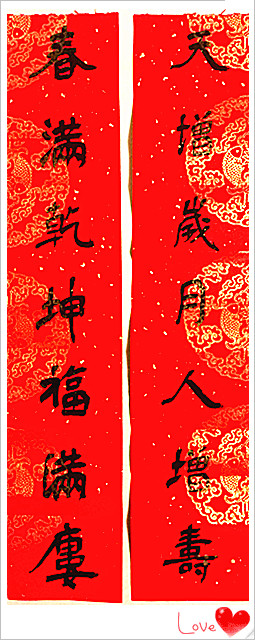 天增歲月人增壽
春滿乾坤福滿廔
Love